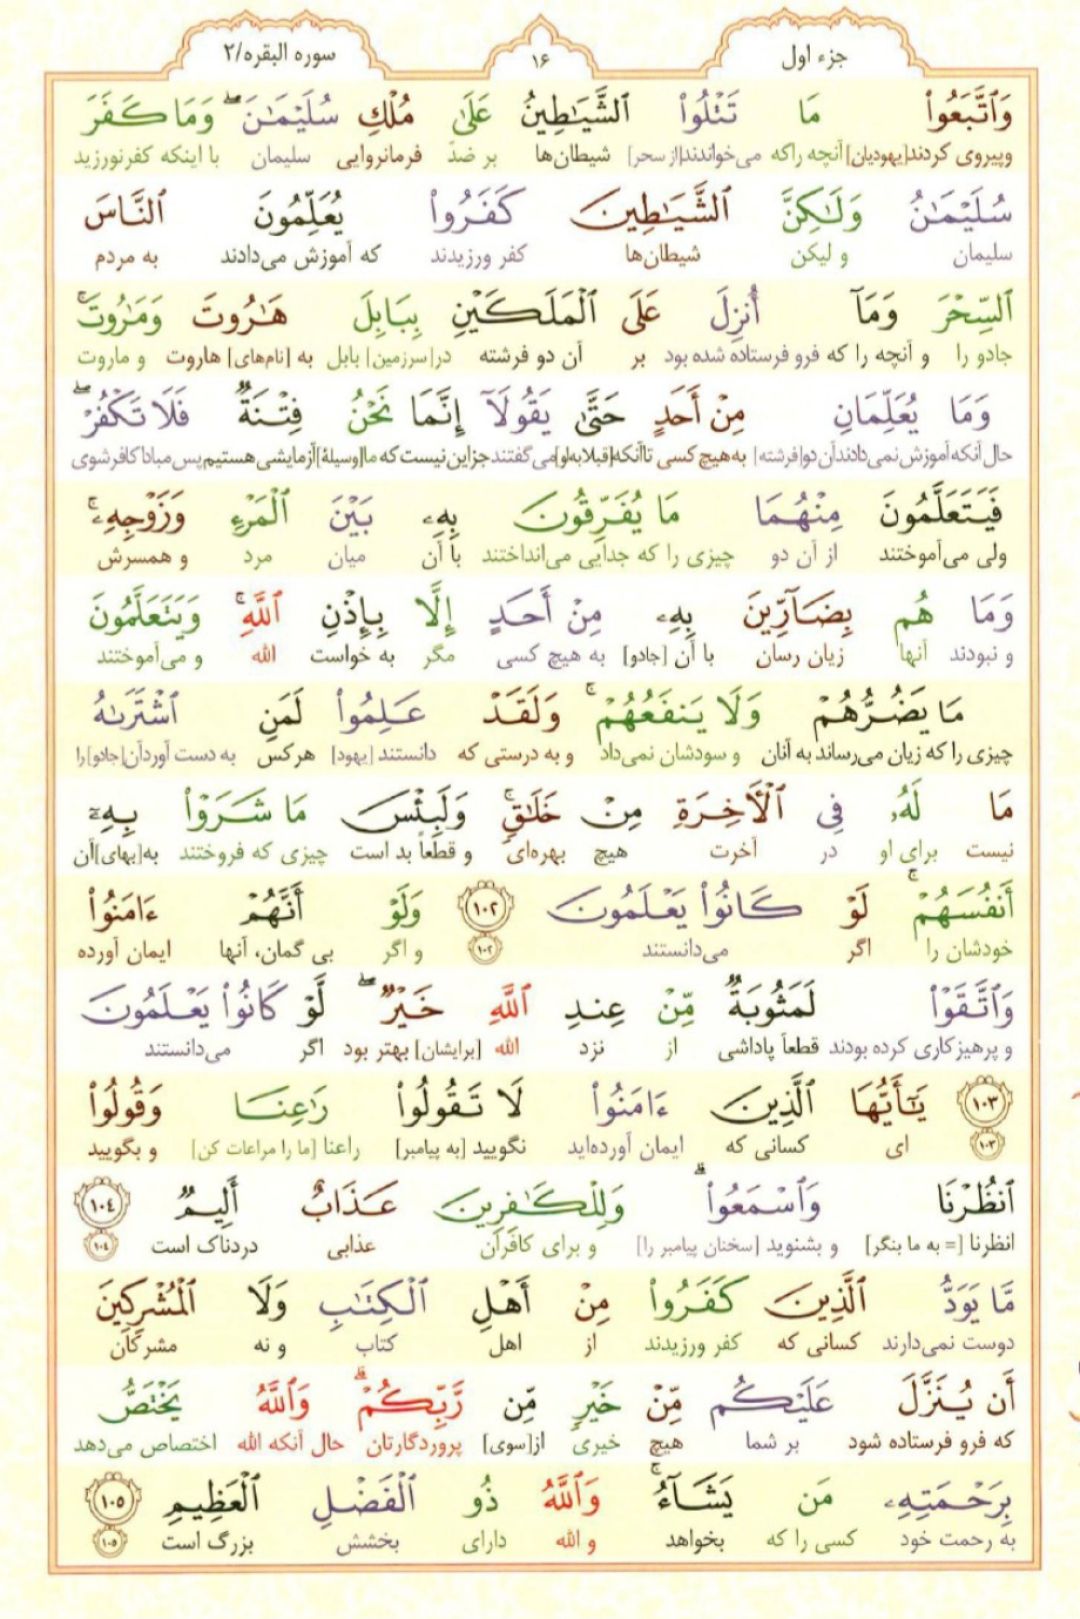 جزء اول ١۶ سوره البقره/٢
وَٱتَّبَعُوا۟ مَا تَتْلُوا۟ ٱلشَّيَـٰطِينُ عَلَىٰ مُلْكِ سُلَيْمَـٰنَ ۖ وَمَا كَفَرَ
وپیروی کردند[یهودیان] آنچه راکه می‌خواندند[از سحر] شیطان‌ها بر ضدّ فرمانروایی سلیمان با اینکه کفرنورزید
سُلَيْمَـٰنُ وَلَـٰكِنَّ ٱلشَّيَـٰطِينَ كَفَرُوا۟ يُعَلِّمُونَ ٱلنَّاسَ
سلیمان و لیکن شیطان‌ها کفر ورزیدند که آموزش می‌دادند به مردم
ٱلسِّحْرَ وَمَآ أُنزِلَ عَلَى ٱلْمَلَكَيْنِ بِبَابِلَ هَـٰرُوتَ وَمَـٰرُوتَ ۚ
جادو را و آنچه را که فرو فرستاده شده بود بر آن دو فرشته در[سرزمین] بابل به [نام‌های] هاروت و ماروت
وَمَا يُعَلِّمَانِ مِنْ أَحَدٍ حَتَّىٰ يَقُولَآ إِنَّمَا نَحْنُ فِتْنَةٌ فَلَا تَكْفُرْ ۖ
حال آنکه آموزش نمی‌دادند آن دو[فرشته] به‌هیچ کسی تاآنکه[قبلابه‌او]می‌گفتند جزاین نیست که ما[وسیلهٔ]آزمایشی هستیم پس مباداکافرشوی
فَيَتَعَلَّمُونَ مِنْهُمَا مَا يُفَرِّقُونَ بِهِۦ بَيْنَ ٱلْمَرْءِ وَزَوْجِهِۦ ۚ
ولی می‌آموختند از آن دو چیزی را که جدایی می‌انداختند با آن میان مرد و همسرش
وَمَا هُم بِضَآرِّينَ بِهِۦ مِنْ أَحَدٍ إِلَّا بِإِذْنِ ٱللَّهِ ۚ وَيَتَعَلَّمُونَ
و نبودند آنها زیان رسان با آن [جادو] به هیچ کسی مگر به خواست الله و می‌آموختند
مَا يَضُرُّهُمْ وَلَا يَنفَعُهُمْ ۚ وَلَقَدْ عَلِمُوا۟ لَمَنِ ٱشْتَرَىٰهُ
چیزی را که زیان می‌رساند به آنان و سودشان نمی‌داد و به درستی که دانستند [یهود] هرکس به دست آوردآن[جادو]را
مَا لَهُۥ فِى ٱلْـَٔاخِرَةِ مِنْ خَلَـٰقٍ ۚ وَلَبِئْسَ مَا شَرَوْا۟ بِهِۦٓ
نیست برای او در آخرت هیچ بهره‌ای و قطعاً بد است چیزی که فروختند به[بهای]آن
أَنفُسَهُمْ ۚ لَوْ كَانُوا۟ يَعْلَمُونَ ١٠٢ وَلَوْ أَنَّهُمْ ءَامَنُوا۟
خودشان را اگر می‌دانستند ١٠٢ و اگر بی گمان، آنها ایمان آورده
وَٱتَّقَوْا۟ لَمَثُوبَةٌ مِّنْ عِندِ ٱللَّهِ خَيْرٌ ۖ لَّوْ كَانُوا۟ يَعْلَمُونَ
و پرهیزکاری کرده بودند قطعاً پاداشی از نزد الله [برایشان] بهتر بود اگر می‌دانستند
١٠٣ يَـٰٓأَيُّهَا ٱلَّذِينَ ءَامَنُوا۟ لَا تَقُولُوا۟ رَٰعِنَا وَقُولُوا۟
١٠٣ ای کسانی که ایمان آورده‌اید نگویید [به پیامبر] راعنا [ما را مراعات کن] و بگویید
ٱنظُرْنَا وَٱسْمَعُوا۟ ۗ وَلِلْكَـٰفِرِينَ عَذَابٌ أَلِيمٌ ١٠٤
انظرنا [= به ما بنگر] و بشنوید [سخنان پیامبر را] و برای کافران عذابی دردناک است ١٠٤
مَّا يَوَدُّ ٱلَّذِينَ كَفَرُوا۟ مِنْ أَهْلِ ٱلْكِتَـٰبِ وَلَا ٱلْمُشْرِكِينَ
دوست نمی‌دارند کسانی که کفر ورزیدند از اهل کتاب و نه مشرکان
أَن يُنَزَّلَ عَلَيْكُم مِّنْ خَيْرٍ مِّن رَّبِّكُمْ ۗ وَٱللَّهُ يَخْتَصُّ
که فرو فرستاده شود بر شما هیچ خیری از[سوی] پروردگارتان حال آنکه الله اختصاص می‌دهد
بِرَحْمَتِهِۦ مَن يَشَآءُ ۚ وَٱللَّهُ ذُو ٱلْفَضْلِ ٱلْعَظِيمِ ١٠٥
به رحمت خود کسی را که بخواهد و الله دارای بخشش بزرگ است ١٠٥